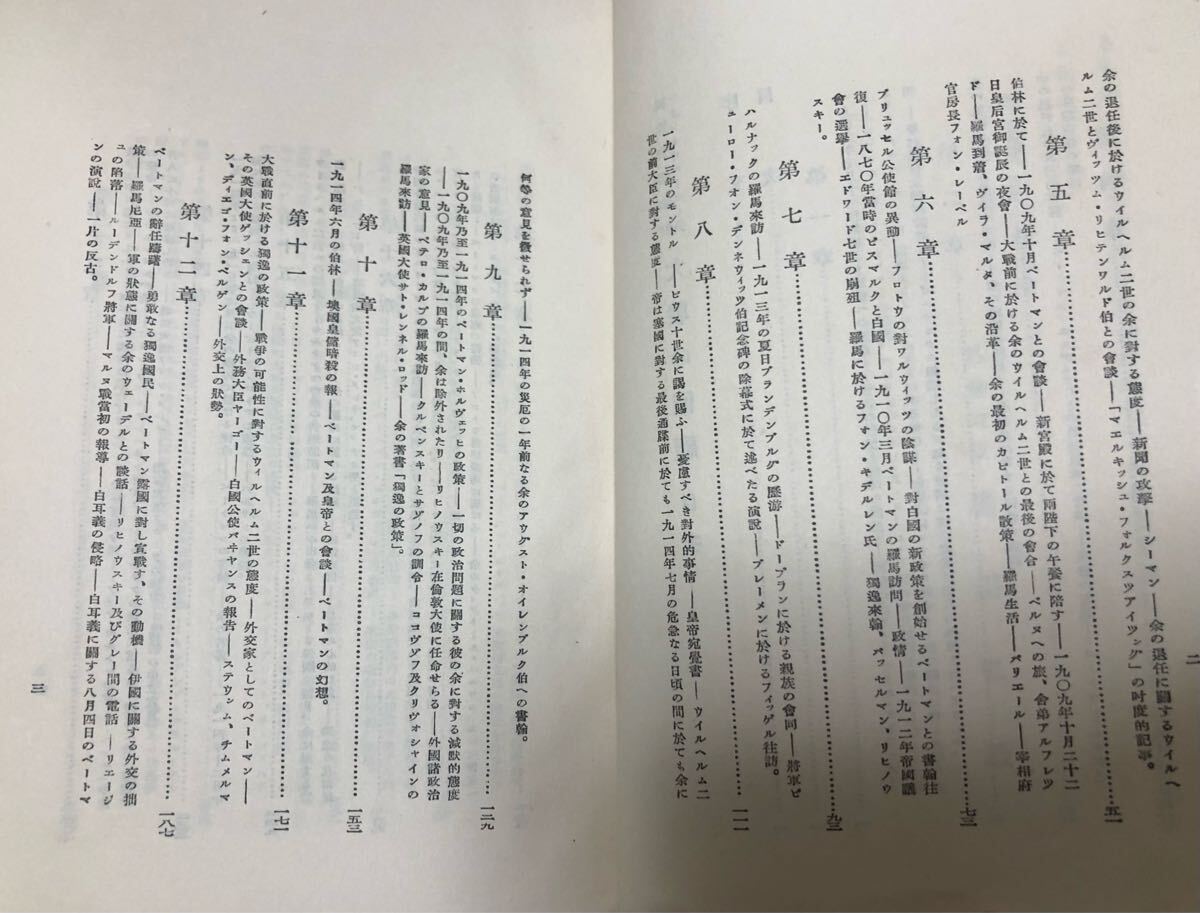 余の退任後に於けるウイルヘルム二世の余に對する態度――新聞の攻擊――シーマン――余の退任に關するウイルヘ
ルム二世とヴィッツム・リヒテンワルド伯との會談――「マエルキッシュ・フォルクスツアイツング」の時度的記事。
第五章……五一
伯林に於て――一九〇九年十月ベートマンとの會談――新宮殿に於て兩陛下の午餐に陪す――一九〇九年十月二十二
日皇后宮御誕辰の夜會――大戰前に於ける余のウイルヘルム二世との最後の會合――ベルヌへの旅、舍弟アルフレツ
ド――羅馬到着、ヴイラ・マルタ、その沿革――余の最初のカピトール散策――羅馬生活――バリエール――宰相府
官房長フォン・レーベル
第六章……七三
ブリュッセル公使館の異動――フロトウの對ワルウィッツの陰謀――對白國の新政策を創始せるベートマンとの書翰往
復――一八七〇年當時のビスマルクと白國――一九一〇年三月ベートマンの羅馬訪問――政情――一九一二年帝國議
會の選擧――エドワード七世の崩殂――羅馬に於けるフォン・キデルレン氏――獨逸來翰、バッセルマン、リヒノウ
スキー。
第七章……九三
ハルナックの羅馬來訪――一九一三年の夏日ブランデンブルグの歷游――ドーブランに於ける親族の會同――將軍ビ
ューロー・フォン・デンネウィッツ伯記念碑の除幕式に於て述べたる演說――ブレーメンに於けるフィッゲル往訪。
第八章……一一一
一九一三年のモントル――ピウス十世余に謁を賜ふ――憂慮すべき對外的事情――皇帝宛覺書――ウイルヘルム二
世の前大臣に對する態度――帝は塞國に對する最後通牒前に於ても一九一四年七月の危急なる日頃の間に於ても余に
二
何等の意見を徵せられず――一九一四年の災厄の一年前なる余のアウグスト・オイレンブルク伯への書翰。
第九章……一二九
一九〇九年乃至一九一四年のベートマン・ホルヴェッヒの政策――一切の政治問題に關する彼の余に對する減默的態度
――一九〇九年乃至一九一四年の間、余は除外されたり――リヒノウスキー在倫敦大使に任命せらる――外國諸政治
家の意見――ペテロ・カルプの羅馬來訪――クルペンスキーとサゾノフの訓令――ココヴゾフ及クリヴォシャインの
羅馬來訪――英國大使サト・レンネル・ロッド――余の著書「獨逸の政策」。
第十章……一五三
一九一四年六月の伯林――墺國皇儲暗殺の報――ベートマン及皇帝との會談――ベートマンの幻想。
第十一章……一七一
大戰直前に於ける獨逸の政策――戰爭の可能性に對するウイルヘルム二世の態度――外交家としてのベートマン――
その英國大使ゲッシェンとの會談――外務大臣ヤーゴー――白國公使バヰヤンスの報告――ステウムム、チムメルマ
ン、ディエゴ・フォン・ベルゲン――外交上の狀勢。
第十二章……一八七
ベートマンの辭任躊躇――勇敢なる獨逸國民――ベートマン露國に對し宣戰す、その動機――伊國に關する外交の拙
策――羅馬尼亞――軍の狀態に關する余のウェーデルとの談話――リヒノウスキー及びグレー間の電話――リエージ
ュの陷落――ルーデンドルフ將軍――マルヌ戰當初の報導――白耳義の侵略――白耳義に關する八月四日のベートマ
ンの演說――一片の反古。
三